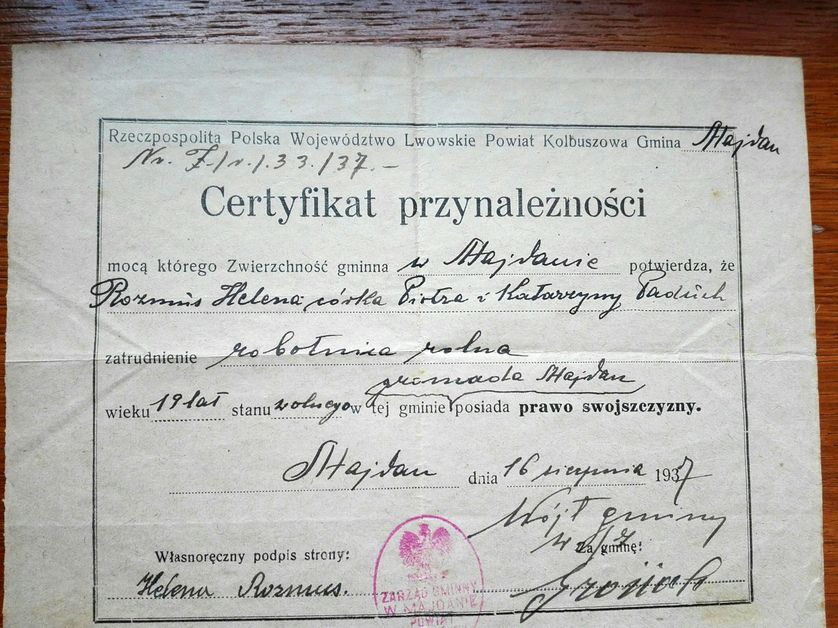 Rzeczpospolita Polska Województwo Lwowskie Powiat Kolbuszowa Gmina Majdan
Nr. 7/r./33./37.-
Certyfikat przynależności
mocą którego Zwierzchność gminna w Majdanie potwierdza, że
Rozmus Helena córka Piotra i Katarzyny
zatrudnienie robotnica rolna
gromada Majdan
wieku 19 lat stanu wolnego w tej gminie posiada prawo swojszczyzny.
Majdan dnia 16 sierpnia 1937
Wójt gminy
Własnoręczny podpis strony: za gminę:
Helena Rozmus.
ZARZĄD GMINNY
W MAJDANIE
POWIAT